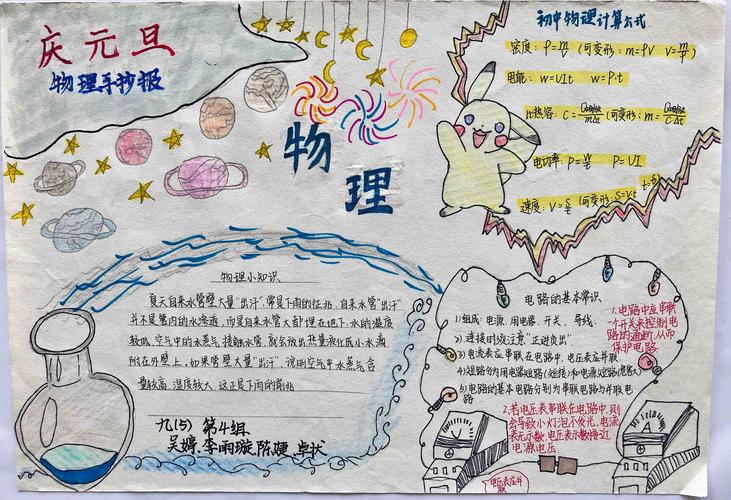 庆元旦
物理手抄报
物
理
初中物理计算公式
密度: ρ=m/V (可变形: m=ρV V=m/ρ)
电能: W=UIt W=P·t
电功率: P=W/t P=UI
速度: V=S/t (可变形: S=Vt
物理小知识
夏天自来水管壁大量“出汗”,常是下雨的征兆,自来水管“出汗”
并不是管内的水渗透,而是自来水管大都埋在地下,水的温度
较低,空气中的水蒸气接触水管,就会放出热量液化成小水滴
附在外壁上,如果管壁大量“出汗”,说明空气中水蒸气含
量较高,湿度较大,这正是下雨的前兆
九(5) 第4组
吴婷、李雨璇、陈婕、卓状
电路的基本常识
1)组成: 电源、用电器、开关、导线
2)连接时须注意“正进负出”
3)电流表应串联在电路中,电压表应并联
4)短路分为用电器短路(短接)和电源短路
5)电路的基本电路分别为串联电路与并联电
路
1.电路中应串联
一个开关来控制电
路的通断,从而
保护电路
2.若电压表串联在电路中,则
会导致小灯泡不发光,电流
表无示数,电压表示数接近
电源电压
电压表应并
联